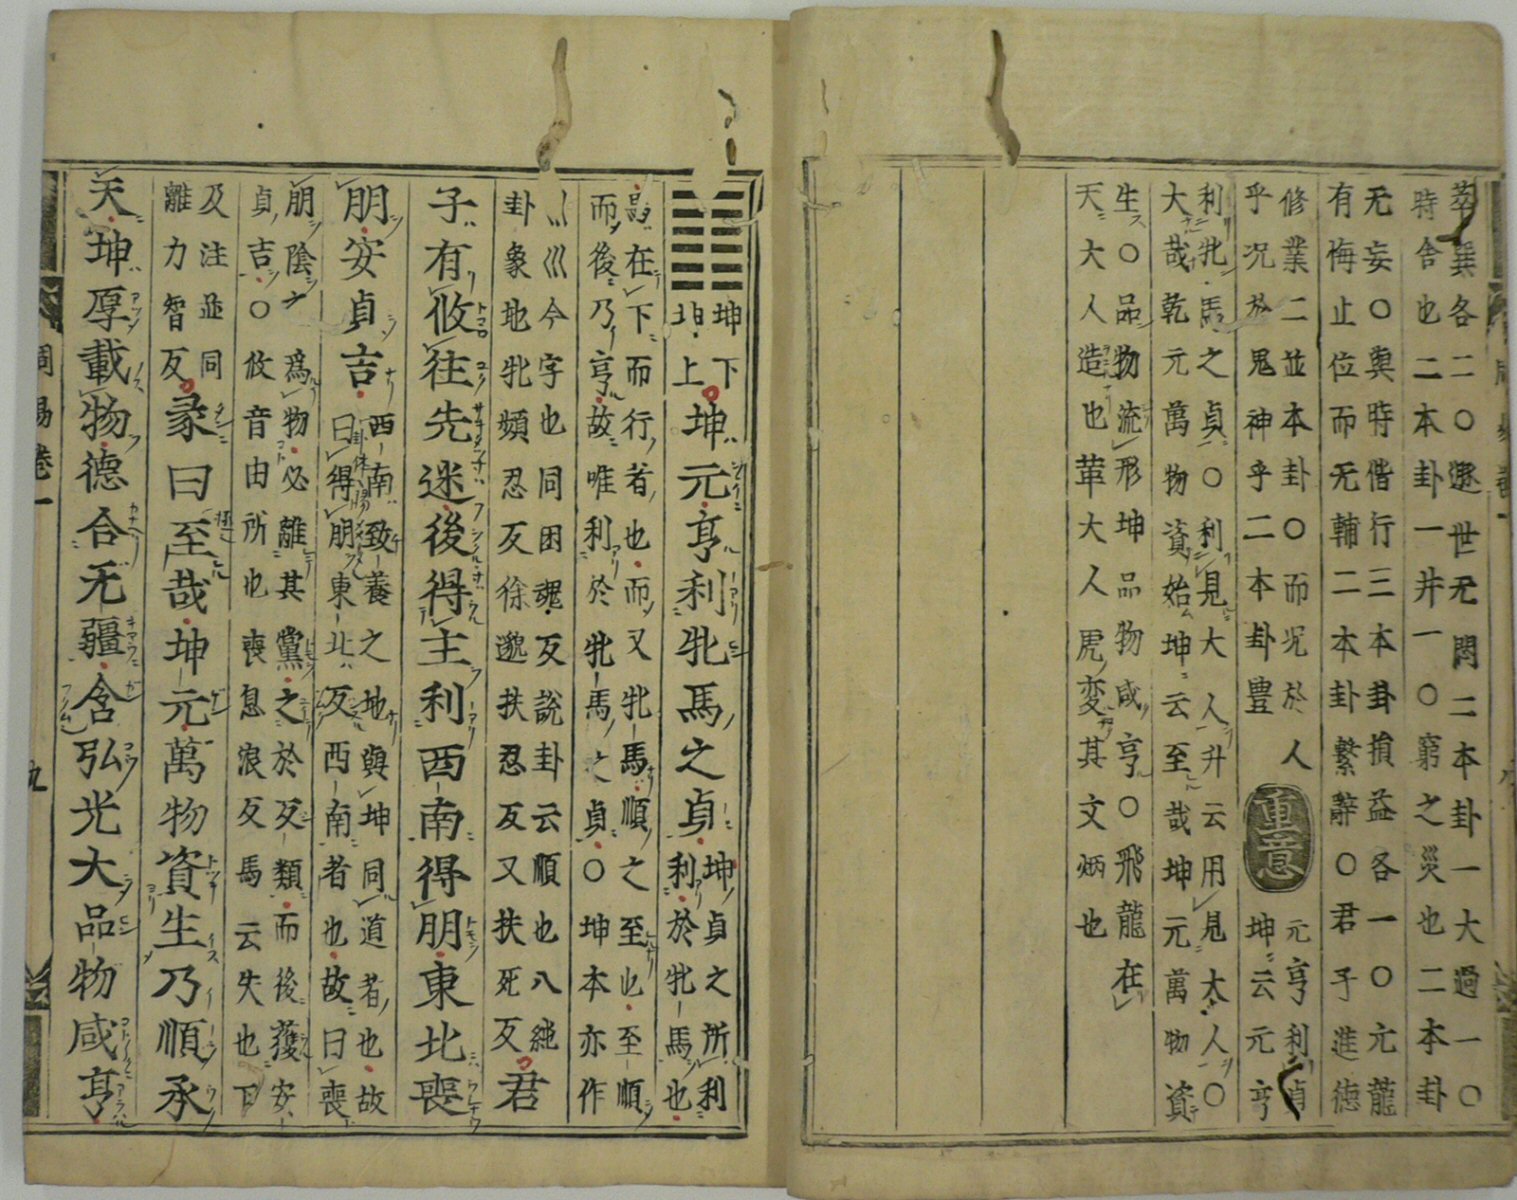 萃巽各二〇遯世无悶二本卦一大過一〇
時舍也二本卦一井一〇窮之災也二本卦
无妄〇與時偕行三本卦損益各一〇亢龍
有悔止位而无輔二本卦繫辭〇君子進德
修業二並本卦〇而況於人
乎況於鬼神乎二本卦豊
重意
元亨利貞
坤云元亨
利牝馬之貞〇利見大人升云用見大人〇
大哉乾元萬物資始坤云至哉坤元萬物資
生〇品物流形坤品物咸亨〇飛龍在
天大人造也革大人虎変其文炳也
坤下
坤上
坤元亨利牝馬之貞
坤貞之所利
利於牝馬也
在下而行者也而又牝馬順之至也至順
而後乃亨故唯利於牝馬之貞〇坤本亦作
巛巛今字也同困魂反說卦云順也八純
卦象地牝頻忍反徐邈扶忍反又扶死反
君
子有攸往先迷後得主利西南得朋東北喪
朋安貞吉
西南致養之地與坤同道者也故
曰得朋東北反西南者也故曰喪
朋陰之爲物必離其黨之於反類而後獲安
貞吉〇攸音由所也喪息浪反馬云失也下
及注並同
離力智反
彖曰至哉坤元萬物資生乃順承
天坤厚載物德合无疆含弘光大品物咸亨
周易卷一
九